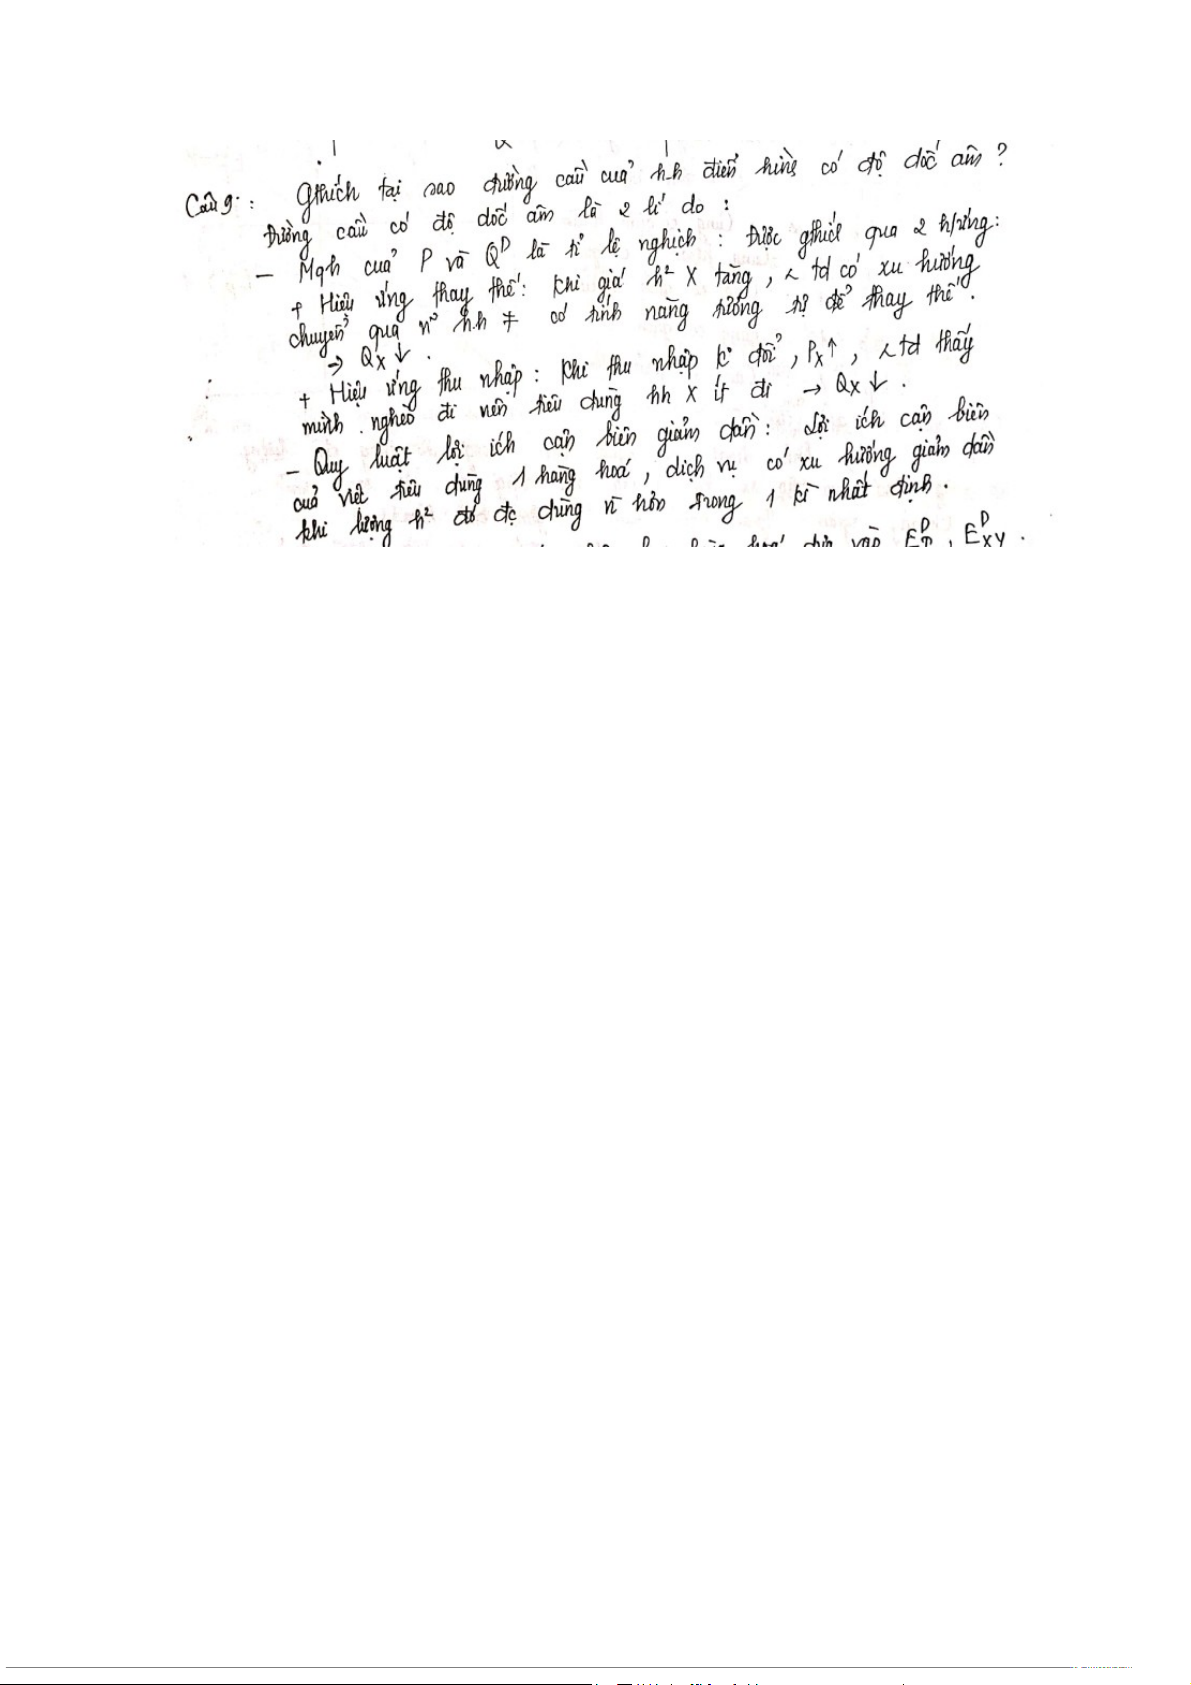 Câu 9: Gthích tại sao đường cầu của h.h điển hình có độ dốc âm?
Đường cầu có độ dốc âm là 2 lí do:
- Mqh của P và Qᴰ là tỉ lệ nghịch: Được gthích qua 2 h/ứng:
+ Hiệu ứng thay thế: Khi giá h² X tăng, td có xu hướng
chuyển qua h.h ≠ có tính năng tương tự để thay thế.
→ Qx ↓.
+ Hiệu ứng thu nhập: Khi thu nhập k đổi, Px ↑, td thấy
mình nghèo đi nên tiêu dùng hh X ít đi → Qx ↓.
- Quy luật lợi ích cận biên giảm dần: Lợi ích cận biên
của việc tiêu dùng 1 hàng hoá, dịch vụ có xu hướng giảm dần
khi lượng h² đó đc dùng n` hơn trong 1 kì nhất định.